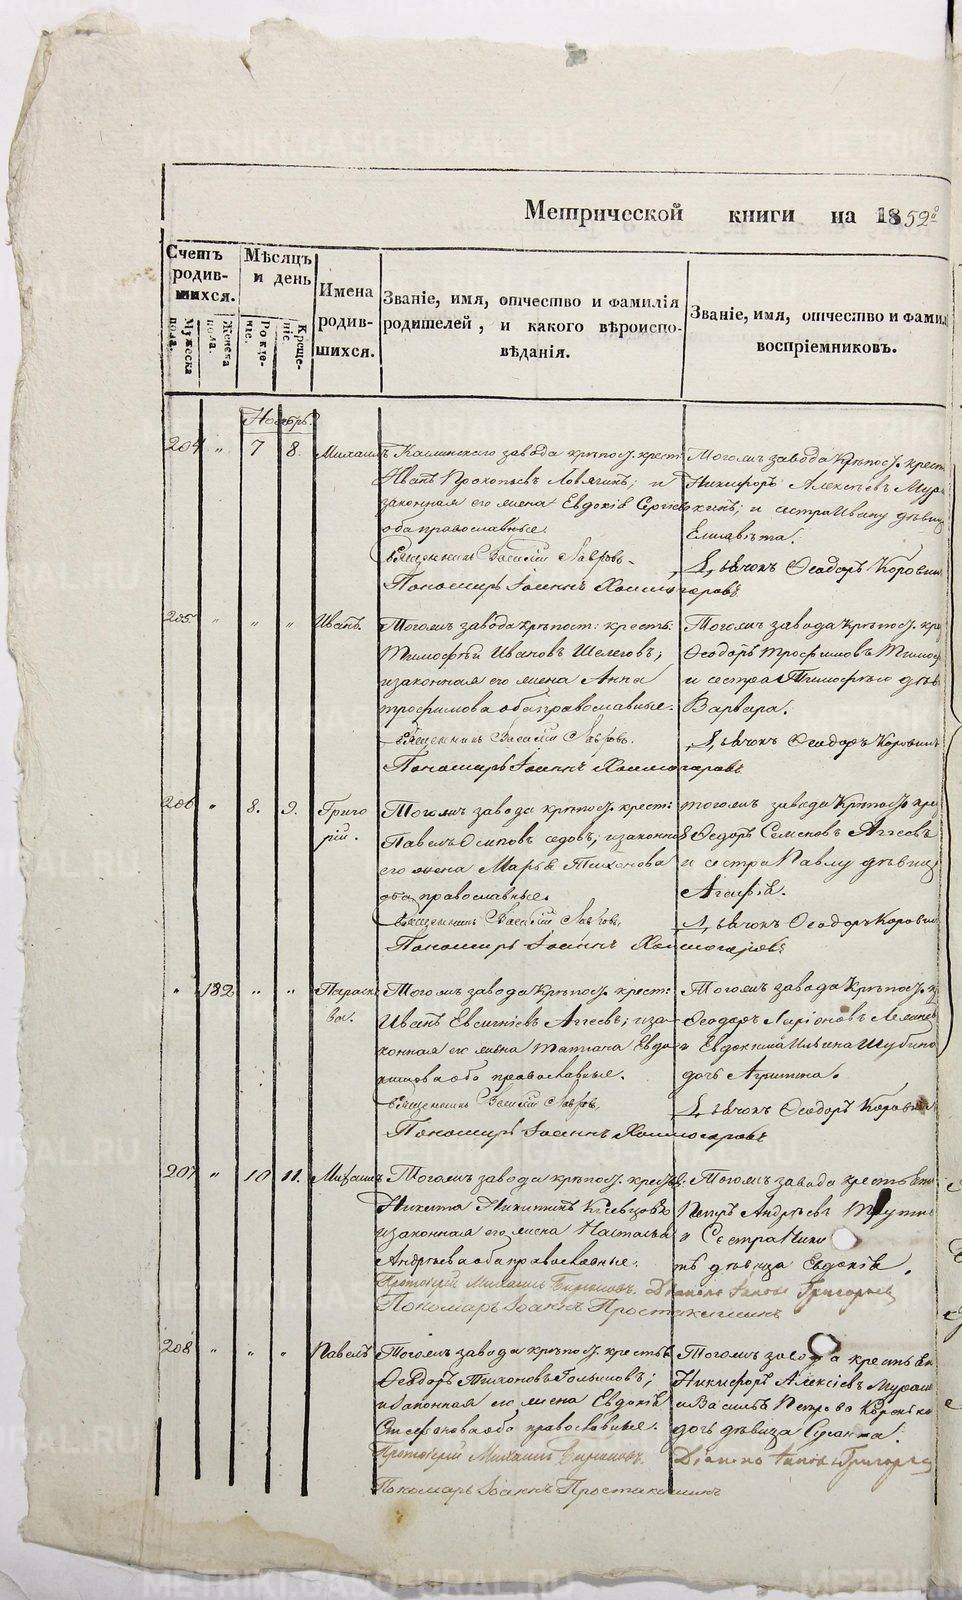 Метрической книги на 1859 о
Счетъ родив-
шихся.
Мужеска пола.
Женска пола.
Мѣсяцъ и день
Рожде-
нiе.
Креще-
нiе.
Имена
родив-
шихся.
Званiе, имя, отчество и фамилiя
родителей, и какого вѣроиспо-
вѣданiя.
Званiе, имя, отчество и фамил
воспрiемниковъ.
Ноябрь
204 " 7 8. Михаилъ
Каслинскаго завода крѣпос. крест
Иванъ Прокопьевъ Ловягинъ; и
законная его жена Евдокiя Сергѣев
оба православные.
Священникъ Василiй Лавровъ
Пономарь Iоаннъ Холмогоровъ
Тогожъ завода Крѣпос. крест
Никифоръ Алексѣевъ Мура
кинъ; и сестра Ивану дѣвица
Елисавѣта.
Дьячокъ Ѳеодоръ Коровин
205. " " " Иванъ.
Тогожъ завода крѣпост: крестья
Тимофѣй Ивановъ Шелеговъ;
и законная его жена Анна
Трофимова оба православные.
Священникъ Василiй Лавровъ.
Пономарь Iоаннъ Холмогоровъ
Тогожъ завода Крѣпос. кре
Ѳеодоръ Трофимовъ
и сестра Тимофѣю дѣв
Варвара.
Дьячокъ Ѳеодоръ Коровинъ
206 " 8. 9. Григо
рiй.
Тогожъ завода крѣпос. крест:
Павелъ Осиповъ Седовъ; и законная
его жена Марья Тихонова
оба православные.
Священникъ Василiй Лавровъ,
Пономарь Iоаннъ Холмогоровъ
тогожъ завода Крѣпос. кре
Ѳедоръ Семеновъ Агѣевъ
и сестра Павлу дѣвица
Агафiя.
Дьячокъ Ѳеодоръ Коровин
" 182 " " Параске
ва.
Тогожъ завода Крѣпос. крест:
Иванъ Евсигнiевъ Агѣевъ; и за-
конная его жена Татiана Евдо
кимова оба православные.
Священникъ Василiй Лавровъ,
Пономарь Iоаннъ Холмогоровъ
Тогожъ завода Крѣпос. к
Ѳеодоръ Ларiоновъ
и Евдокима Ильина Шубина
дочь Агрипина.
Дьячокъ Ѳеодоръ Коровин
207 " 10 11. Михаилъ
Тогожъ завода крѣпос. крест
Никита Никитинъ
и законная его жена Наталья
Андрѣева оба православные.
Протоiерей Михаилъ Бирюковъ.
Пономарь Iоаннъ Простакишинъ
Тогожъ завода крестьян
Петръ Андрѣевъ
и Сестра Ники
тѣ дѣвица Евдокiя.
Дiаконъ Iаковъ Григорьев
208 " " " Павелъ
Тогожъ завода крѣпос. крестья
Ѳеодоръ Тихоновъ
и законная его жена Евдокiя
Стефанова оба православные.
Протоiерей Михаилъ Бирюковъ.
Пономарь Iоаннъ Простакишинъ
Тогожъ завода крестьян
Никифоръ Алексѣевъ
и Василья Петрова
дочь дѣвица Сусанна.
Дiаконъ Iаковъ Григорье
METRIKI.GASO-URAL.RU